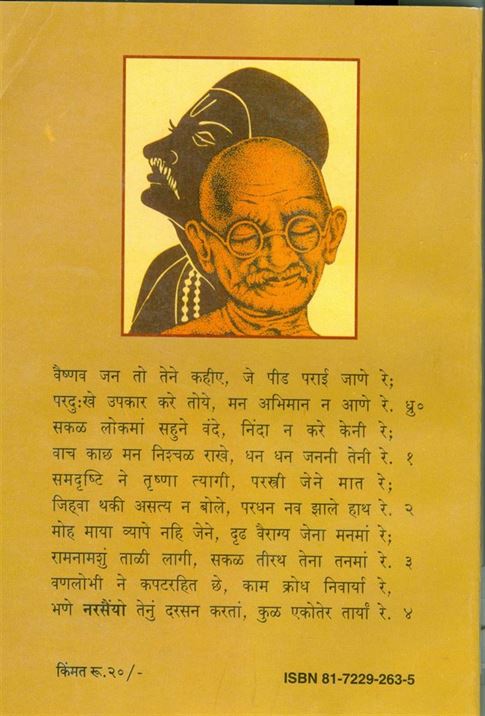 वैष्णव जन तो तेने कहीए, जे पीड पराई जाणे रे;
परदुःखे उपकार करे तोये, मन अभिमान न आणे रे. ध्रु०
सकळ लोकमां सहुने वंदे, निंदा न करे केनी रे;
वाच काछ मन निश्चळ राखे, धन धन जननी तेनी रे. १
समदृष्टि ने तृष्णा त्यागी, परस्त्री जेने मात रे;
जिह्वा थकी असत्य न बोले, परधन नव झाले हाथ रे. २
मोह माया व्यापे नहि जेने, दृढ वैराग्य जेना मनमां रे;
रामनामशुं ताळी लागी, सकळ तीरथ तेना तनमां रे. ३
वणलोभी ने कपटरहित छे, काम क्रोध निवार्या रे,
भणे नरसैंयो तेनुं दरसन करतां, कुळ एकोतेर तार्यां रे. ४
किंमत रू.२०/-
ISBN 81-7229-263-5